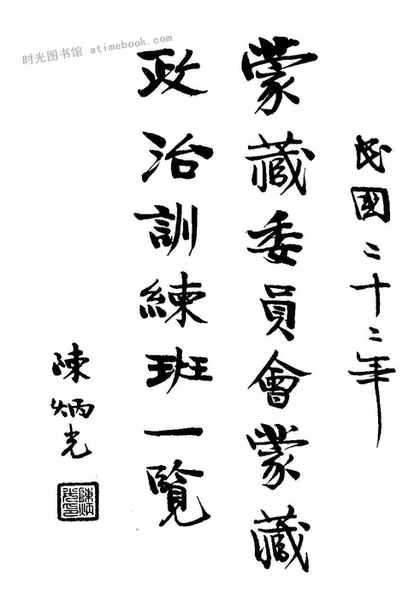 时光图书馆 atimebook.com
民國二十二年
蒙藏委員會蒙藏
政治訓練班一覽
陳炳光
陳炳
光印